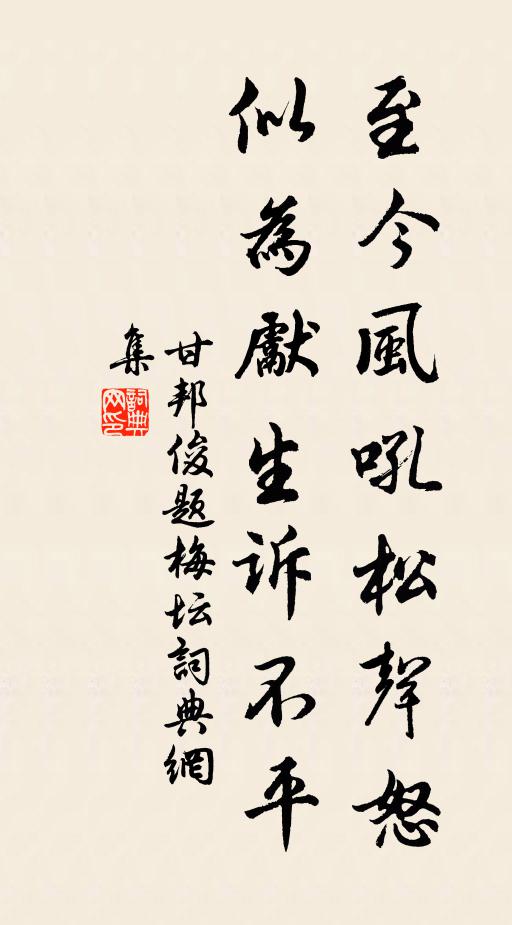 至今風吼松聲怒
似為獻生訴不平
甘邦俊题梅坛詞典網
集
詞典
网印